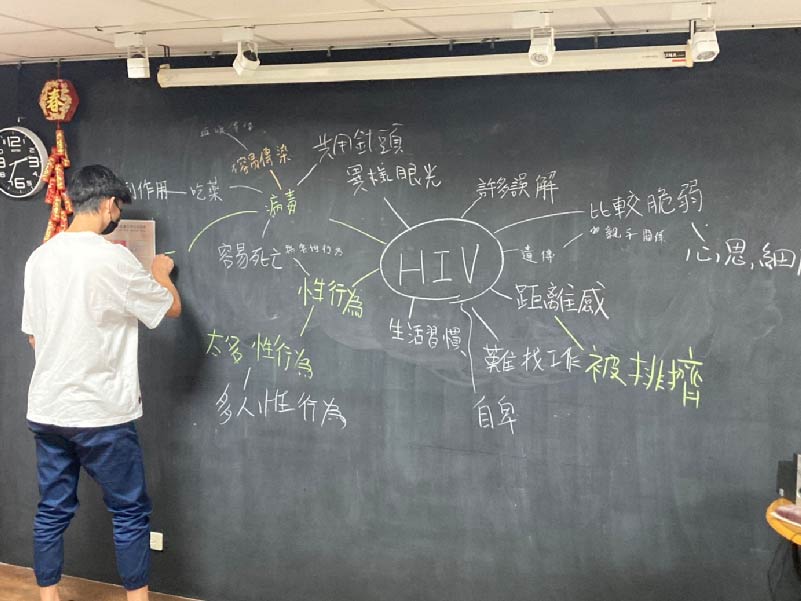 春
12
3
6
9
共用針頭
容易傳染
異樣眼光
許多誤解
副作用
吃藥
病毒
比較脆弱
遺傳
親子關係
心思,細
HIV
容易死亡
性行為
距離感
生活習慣
太多性行為
難找工作
被排擠
多人性行為
自卑